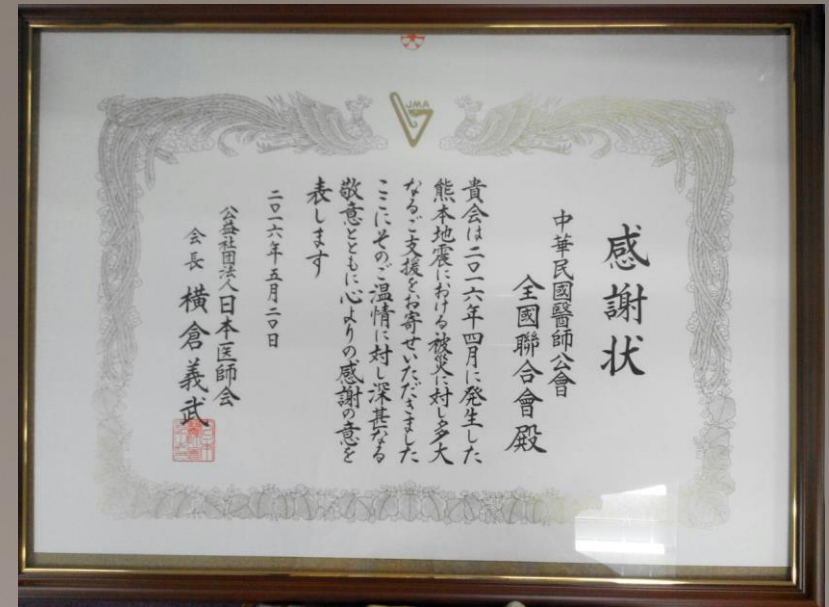 JMA
感謝状
中華民國醫師公會
全國聯合會殿
貴会は二〇一六年四月に発生した
熊本地震における被災に対し多大
なるご支援をお寄せいただきました
ここにそのご温情に対し深甚なる
敬意とともに心よりの感謝の意を
表します
二〇一六年五月二〇日
公益社団法人日本医師会
会長 横倉義武